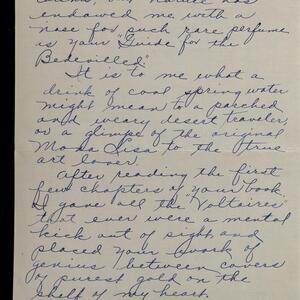 but nature has
endowed me with a
nose for such rare perfume
as your "Guide for the
Bedevilled."
It is to me what a
drink of cool spring water
might mean to a parched
and weary desert traveler,
or a glimpse of the original
Mona Lisa to the true
art lover.
After reading the first
few chapters of your book
I gave all the "Voltaires"
that ever were a mental
kick out of sight and
placed your work of
genius between covers
of purest gold on the
shelf of my heart.